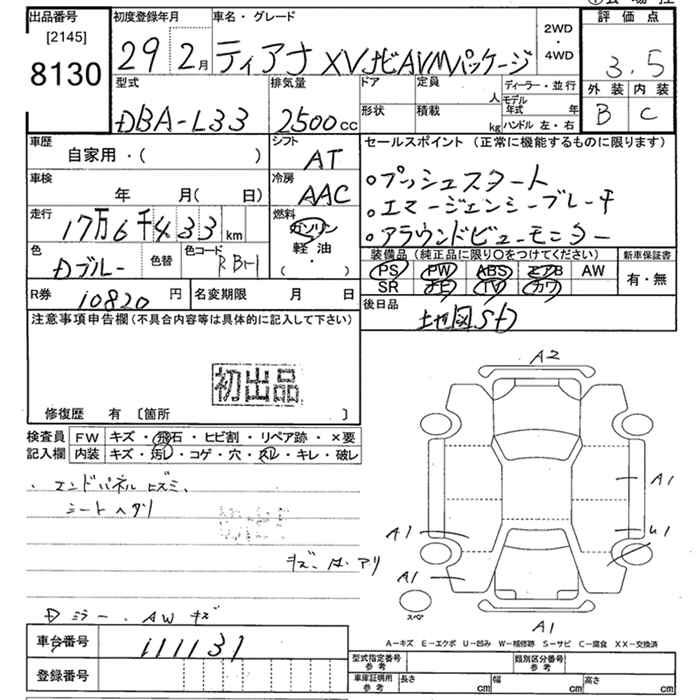 出品番号
[2145]
8130
初度登録年月
29年2月
車名・グレード
ティアナ XVナビAVMパッケージ
2WD
・
4WD
評価点
3.5
外装 内装
B C
型式
DBA-L33
排気量
2500cc
ドア
形状
定員
人
積載
kg
ディーラー・並行
モデル年式 年
ハンドル 左・右
車歴
自家用・( )
シフト
AT
車検
年 月( 日)
冷房
AAC
走行
17万6千433km
燃料
ガソリン
軽油
( ・ )
色
Dブルー
色替
色コード
RBH
R券
10820円
名変期限 月 日
セールスポイント (正常に機能するものに限ります)
○プッシュスタート
○エマージェンシーブレーキ
○アラウンドビューモニター
装備品 (純正品に限り○をつけてください)
PS PW ABS エアB AW
SR ナビ TV カワ
新車保証書
有・無
後日品
地図SD
注意事項申告欄 (不具合内容等は具体的に記入して下さい)
初出品
修復歴 有 [箇所 ]
検査員記入欄
FW キズ・飛石・ヒビ割・リペア跡・×要
内装 キズ・汚レ・コゲ・穴・スレ・キレ・破レ
・エンドパネルヒズミ、
シートヘタリ
キズ、凹、アリ
Dミラー、AWキズ
A2
A1
U1
A1
A1
A1
スペア
A-キズ E-エクボ U-凹み W-補修跡 S-サビ C-腐食 XX-交換済
車台番号
111131
登録番号
型式指定番号 参考
類別区分番号 参考
車庫証明用 参考
長さ cm
幅 cm
高さ cm